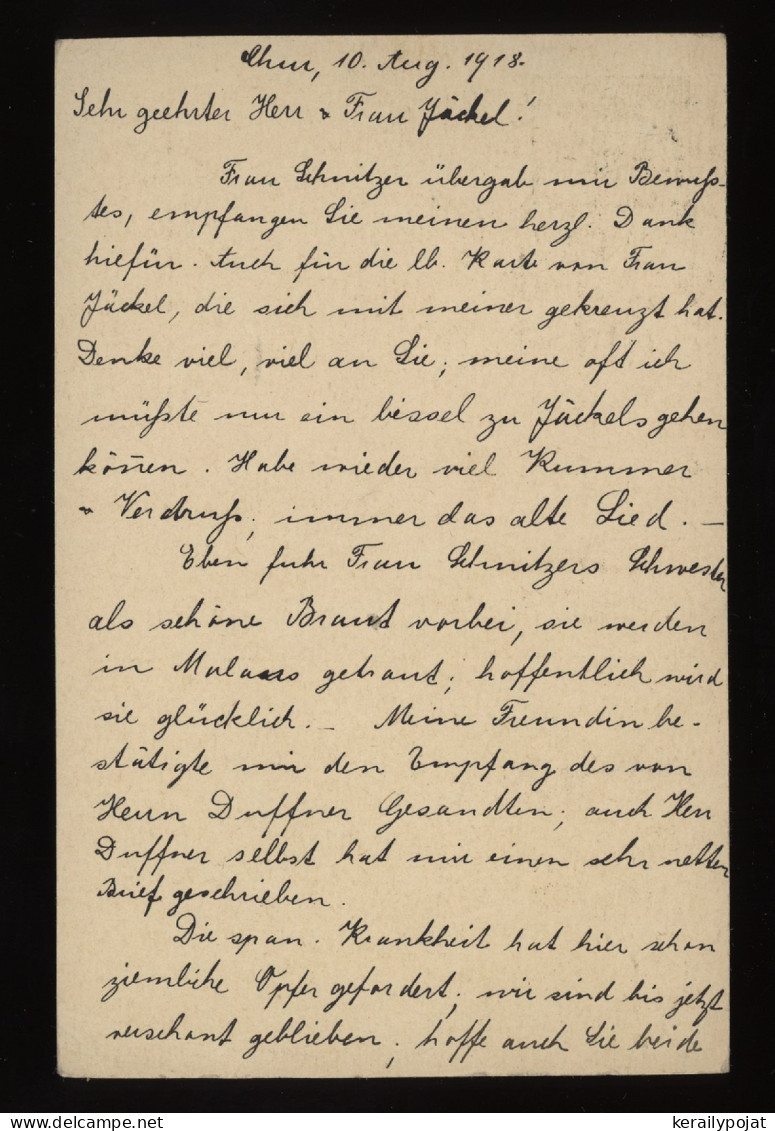 Chur, 10. Aug. 1918.
Sehr geehrter Herr & Frau Jäckel!
Frau Schnitzer übergab mir Bewuß-
tes, empfangen Sie meinen herzl. Dank
hiefür. Auch für die lb. Karte von Frau
Jäckel, die sich mit meiner gekreuzt hat.
Denke viel, viel an Sie; meine oft ich
müßte nur ein bissel zu Jäckels gehen
können. Habe wieder viel Kummer
& Verdruß; immer das alte Lied. —
Eben fuhr Frau Schnitzers Schwester
als schöne Braut vorbei, sie werden
in Malans getraut; hoffentlich wird
sie glücklich. — Meine Freundin be-
stätigte mir den Empfang des von
Herrn Duffner Gesandten; auch Herr
Duffner selbst hat mir einen sehr netten
Brief geschrieben.
Die span. Krankheit hat hier schon
ziemliche Opfer gefordert; wir sind bis jetzt
verschont geblieben; hoffe auch Sie beide
kerailypojat